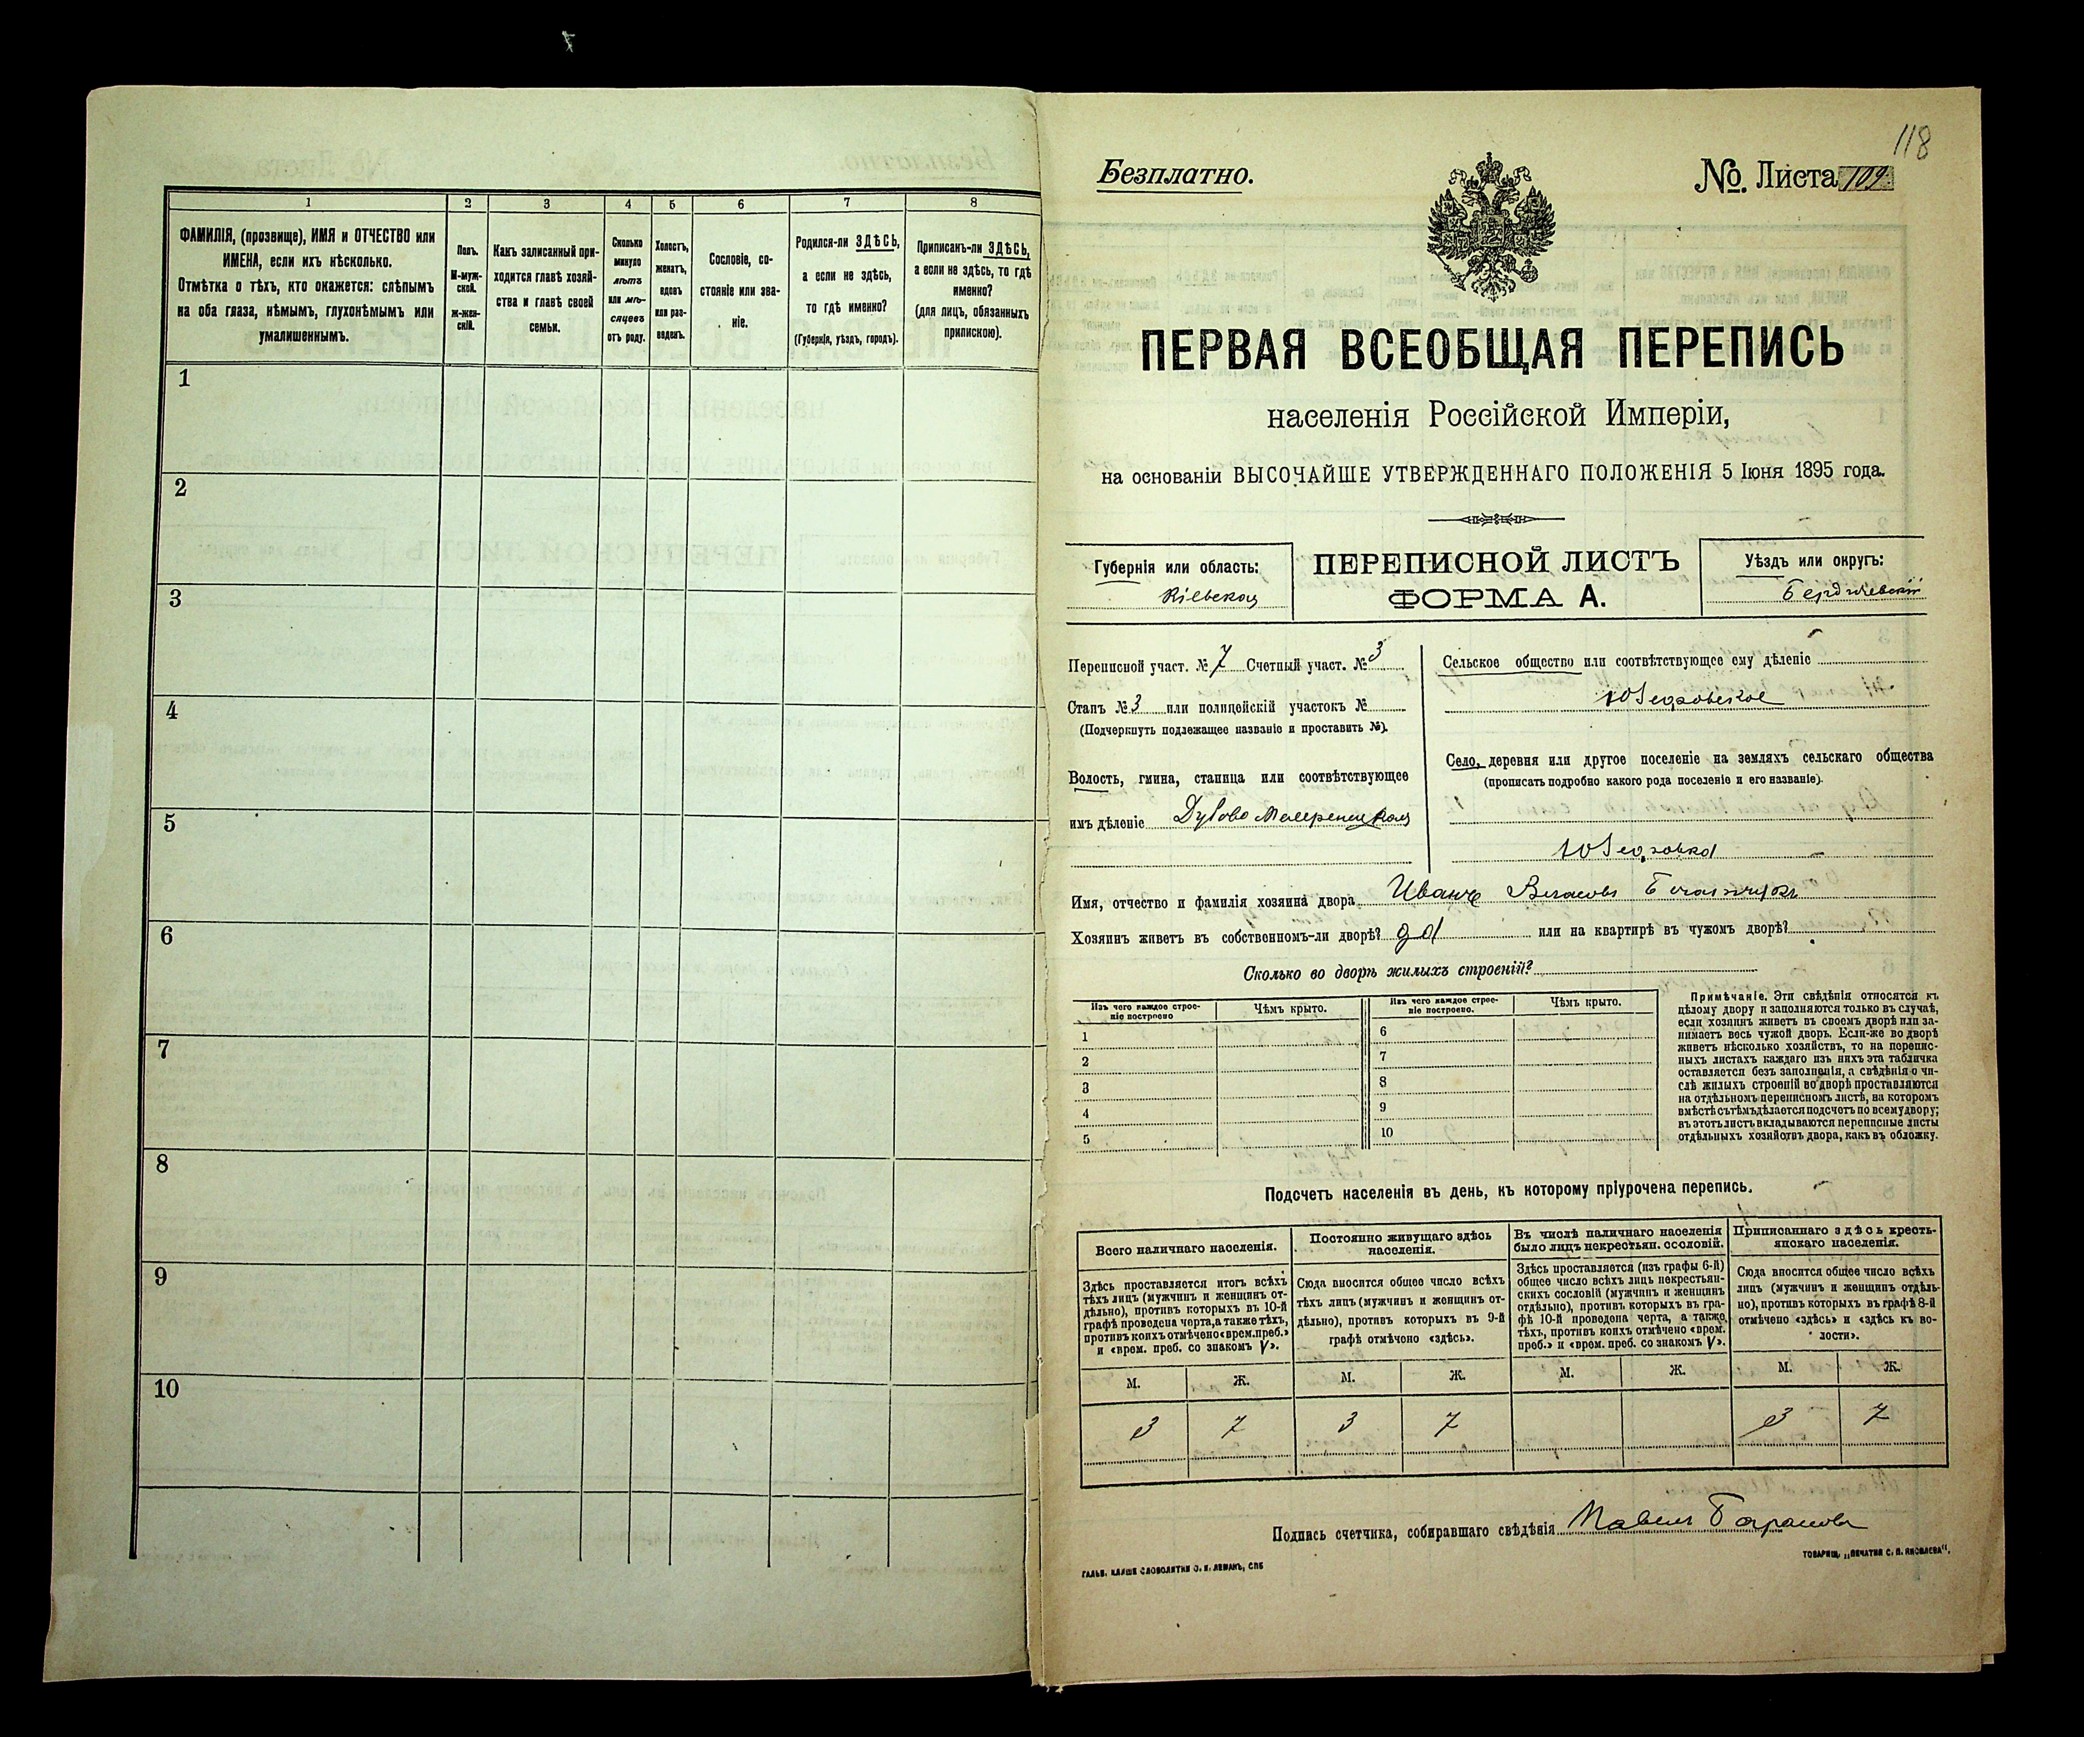 1 2 3 4 5 6 7 8
ФАМИЛІЯ, (прозвище), ИМЯ и ОТЧЕСТВО или
ИМЕНА, если ихъ нѣсколько.
Отмѣтка о тѣхъ, кто окажется: слѣпымъ
на оба глаза, нѣмымъ, глухонѣмымъ или
умалишеннымъ.
Полъ.
М-муж-
ской.
ж-жен-
скій.
Какъ записанный при-
ходится главѣ хозяй-
ства и главѣ своей
семьи.
Сколько
минуло
лѣтъ
или мѣ-
сяцевъ
отъ роду.
Холостъ,
женатъ,
вдовъ
или раз-
веденъ.
Сословіе, со-
стояніе или зва-
ніе.
Родился-ли ЗДѢСЬ,
а если не здѣсь,
то гдѣ именно?
(Губернія, уѣздъ, городъ).
Приписанъ-ли ЗДѢСЬ,
а если не здѣсь, то гдѣ
именно?
(для лицъ, обязанныхъ
припискою).
1
2
3
4
5
6
7
8
9
10
118
Безплатно.
№. Листа 109
ПЕРВАЯ ВСЕОБЩАЯ ПЕРЕПИСЬ
населенія Россійской Имперіи,
на основаніи ВЫСОЧАЙШЕ УТВЕРЖДЕННАГО ПОЛОЖЕНІЯ 5 Іюня 1895 года.
Губернія или область:
Кіевская
ПЕРЕПИСНОЙ ЛИСТЪ
ФОРМА А.
Уѣздъ или округъ:
Бердичевскій
Переписной участ. № 7 Счетный участ. № 3
Станъ № 3 или полицейскій участокъ №
(Подчеркнуть подлежащее названіе и проставить №).
Волость, гмина, станица или соотвѣтствующее
имъ дѣленіе
Сельское общество или соотвѣтствующее ему дѣленіе
Село, деревня или другое поселеніе на земляхъ сельскаго общества
(прописать подробно какого рода поселеніе и его названіе).
Имя, отчество и фамилія хозяина двора Иванъ Власовъ
Хозяинъ живетъ въ собственномъ-ли дворѣ? да или на квартирѣ въ чужомъ дворѣ?
Сколько во дворѣ жилыхъ строеній?
Изъ чего каждое строе-
ніе построено
Чѣмъ крыто.
Изъ чего каждое строе-
ніе построено.
Чѣмъ крыто.
1 6
2 7
3 8
4 9
5 10
Примѣчаніе. Эти свѣдѣнія относятся къ
цѣлому двору и заполняются только въ случаѣ,
если хозяинъ живетъ въ своемъ дворѣ или за-
нимаетъ весь чужой дворъ. Если-же во дворѣ
живетъ нѣсколько хозяйствъ, то на перепис-
ныхъ листахъ каждаго изъ нихъ эта табличка
оставляется безъ заполненія, а свѣдѣнія о чи-
слѣ жилыхъ строеній во дворѣ проставляются
на отдѣльномъ переписномъ листѣ, на которомъ
вмѣстѣ съ тѣмъ дѣлается подсчетъ по всему двору;
въ этотъ листъ вкладываются переписные листы
отдѣльныхъ хозяйствъ двора, какъ въ обложку.
Подсчетъ населенія въ день, къ которому пріурочена перепись.
Всего наличнаго населенія.
Здѣсь проставляется итогъ всѣхъ
тѣхъ лицъ (мужчинъ и женщинъ от-
дѣльно), противъ которыхъ въ 10-й
графѣ проведена черта, а также тѣхъ,
противъ коихъ отмѣчено «врем. преб.»
и «врем. преб. со знакомъ V».
Постоянно живущаго здѣсь
населенія.
Сюда вносится общее число всѣхъ
тѣхъ лицъ (мужчинъ и женщинъ от-
дѣльно), противъ которыхъ въ 9-й
графѣ отмѣчено «здѣсь».
Въ числѣ наличнаго населенія
было лицъ некрестьян. сословій.
Здѣсь проставляется (изъ графы 6-й)
общее число всѣхъ лицъ некрестьян-
скихъ сословій (мужчинъ и женщинъ
отдѣльно), противъ которыхъ въ гра-
фѣ 10-й проведена черта, а также,
тѣхъ, противъ коихъ отмѣчено «врем.
преб.» и «врем. преб. со знакомъ V».
Приписаннаго здѣсь кресть-
янскаго населенія.
Сюда вносится общее число всѣхъ
лицъ (мужчинъ и женщинъ отдѣль-
но), противъ которыхъ въ графѣ 8-й
отмѣчено «здѣсь» и «здѣсь въ во-
лости».
М. Ж. М. Ж. М. Ж. М. Ж.
3 7 3 7 3 7
Подпись счетчика, собиравшаго свѣдѣнія Павелъ
ГАЛЬВ. КЛИШЕ СЛОВОЛИТНИ О. И. ЛЕМАНЪ, СПБ
ТОВАРИЩ. „ПЕЧАТНЯ С. П. ЯКОВЛЕВА".